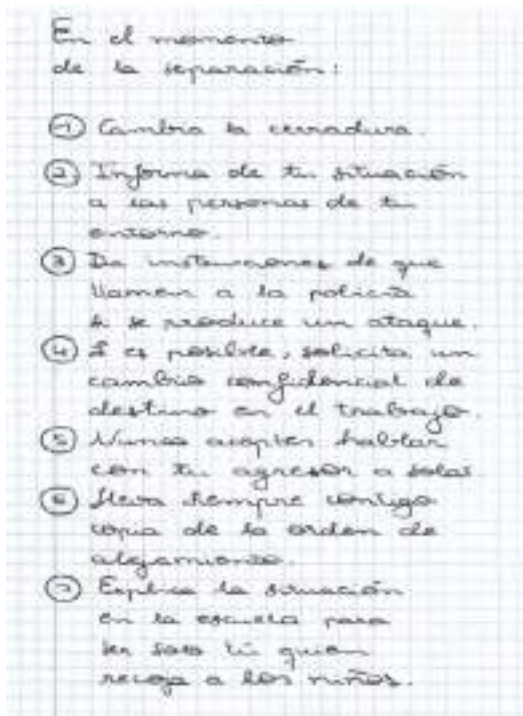 En el momento
de la separación:
① Cambia la cerradura.
② Informa de tu situación
a las personas de tu
entorno.
③ Da instrucciones de que
llamen a la policía
si se produce un ataque.
④ Si es posible, solicita un
cambio confidencial de
destino en el trabajo.
⑤ Nunca aceptes hablar
con tu agresor a solas.
⑥ Lleva siempre contigo
copia de la orden de
alejamiento.
⑦ Explica la situación
en la escuela para
ser solo tú quien
recoja a los niños.